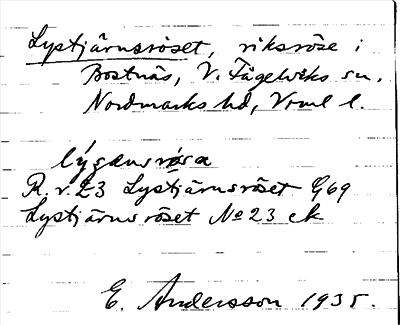 Lystjärnsröset, riksröse i
Bostnäs, V. Fågelviks sn,
Nordmarks hd, Vrml l.
lýgænsrǿsa
R. r. 23 Lystjärnsröset G69
Lystjärnsröset No 23 ek
E. Andersson 1935.